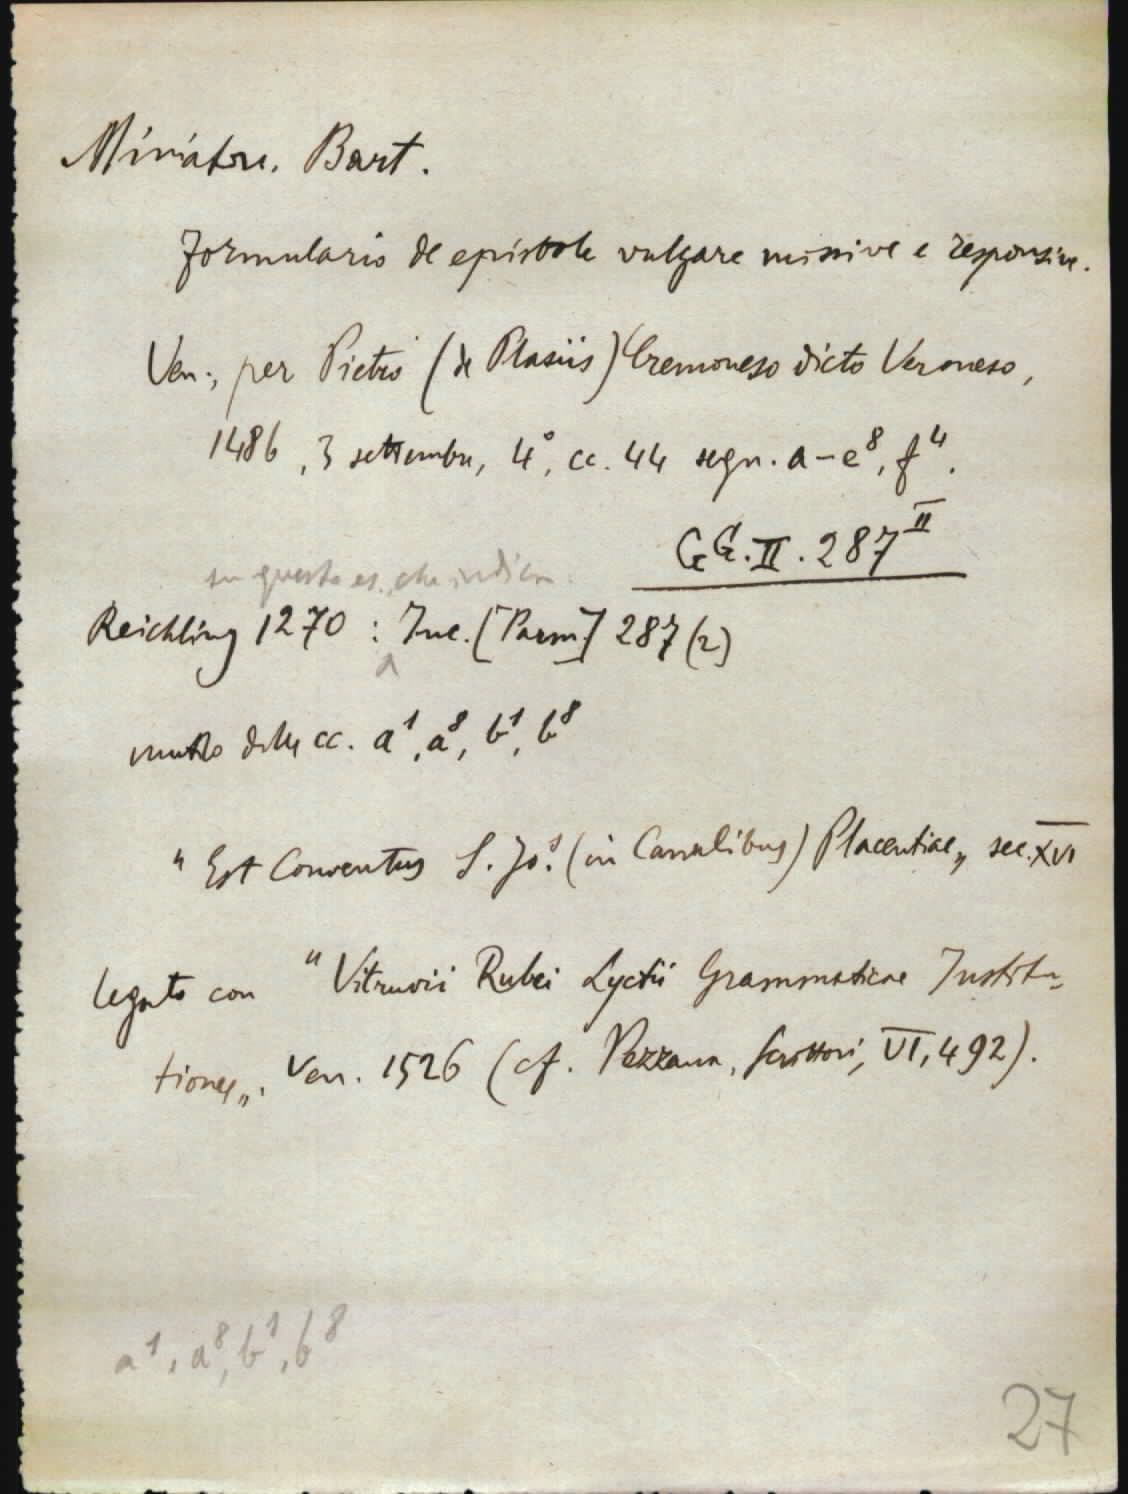 Miniatore, Bart.
Formulario de epistole vulgare missive e responsive.
Ven., per Pietro (de Plasiis) Cremoneso dicto Veroneso,
1486, 3 settembre, 4°, cc. 44 segn. a-e⁸, f⁴.
GG.II.287ᴵᴵ
su questo es. che indica
Reichling 1270 : Inc. [Parm.] 287(2)
^
mutilo delle cc. a¹, a⁸, b¹, b⁸
" Est Conventus S. Jo.ˢ (in Canalibus) Placentiae„ sec. XVI
legato con "Vitruvii Rubei Lyctii Grammaticae Institu-
tiones„. Ven. 1526 (cf. Pezzana, Scrittori, VI, 492).
a¹, a⁸, b¹, b⁸
27